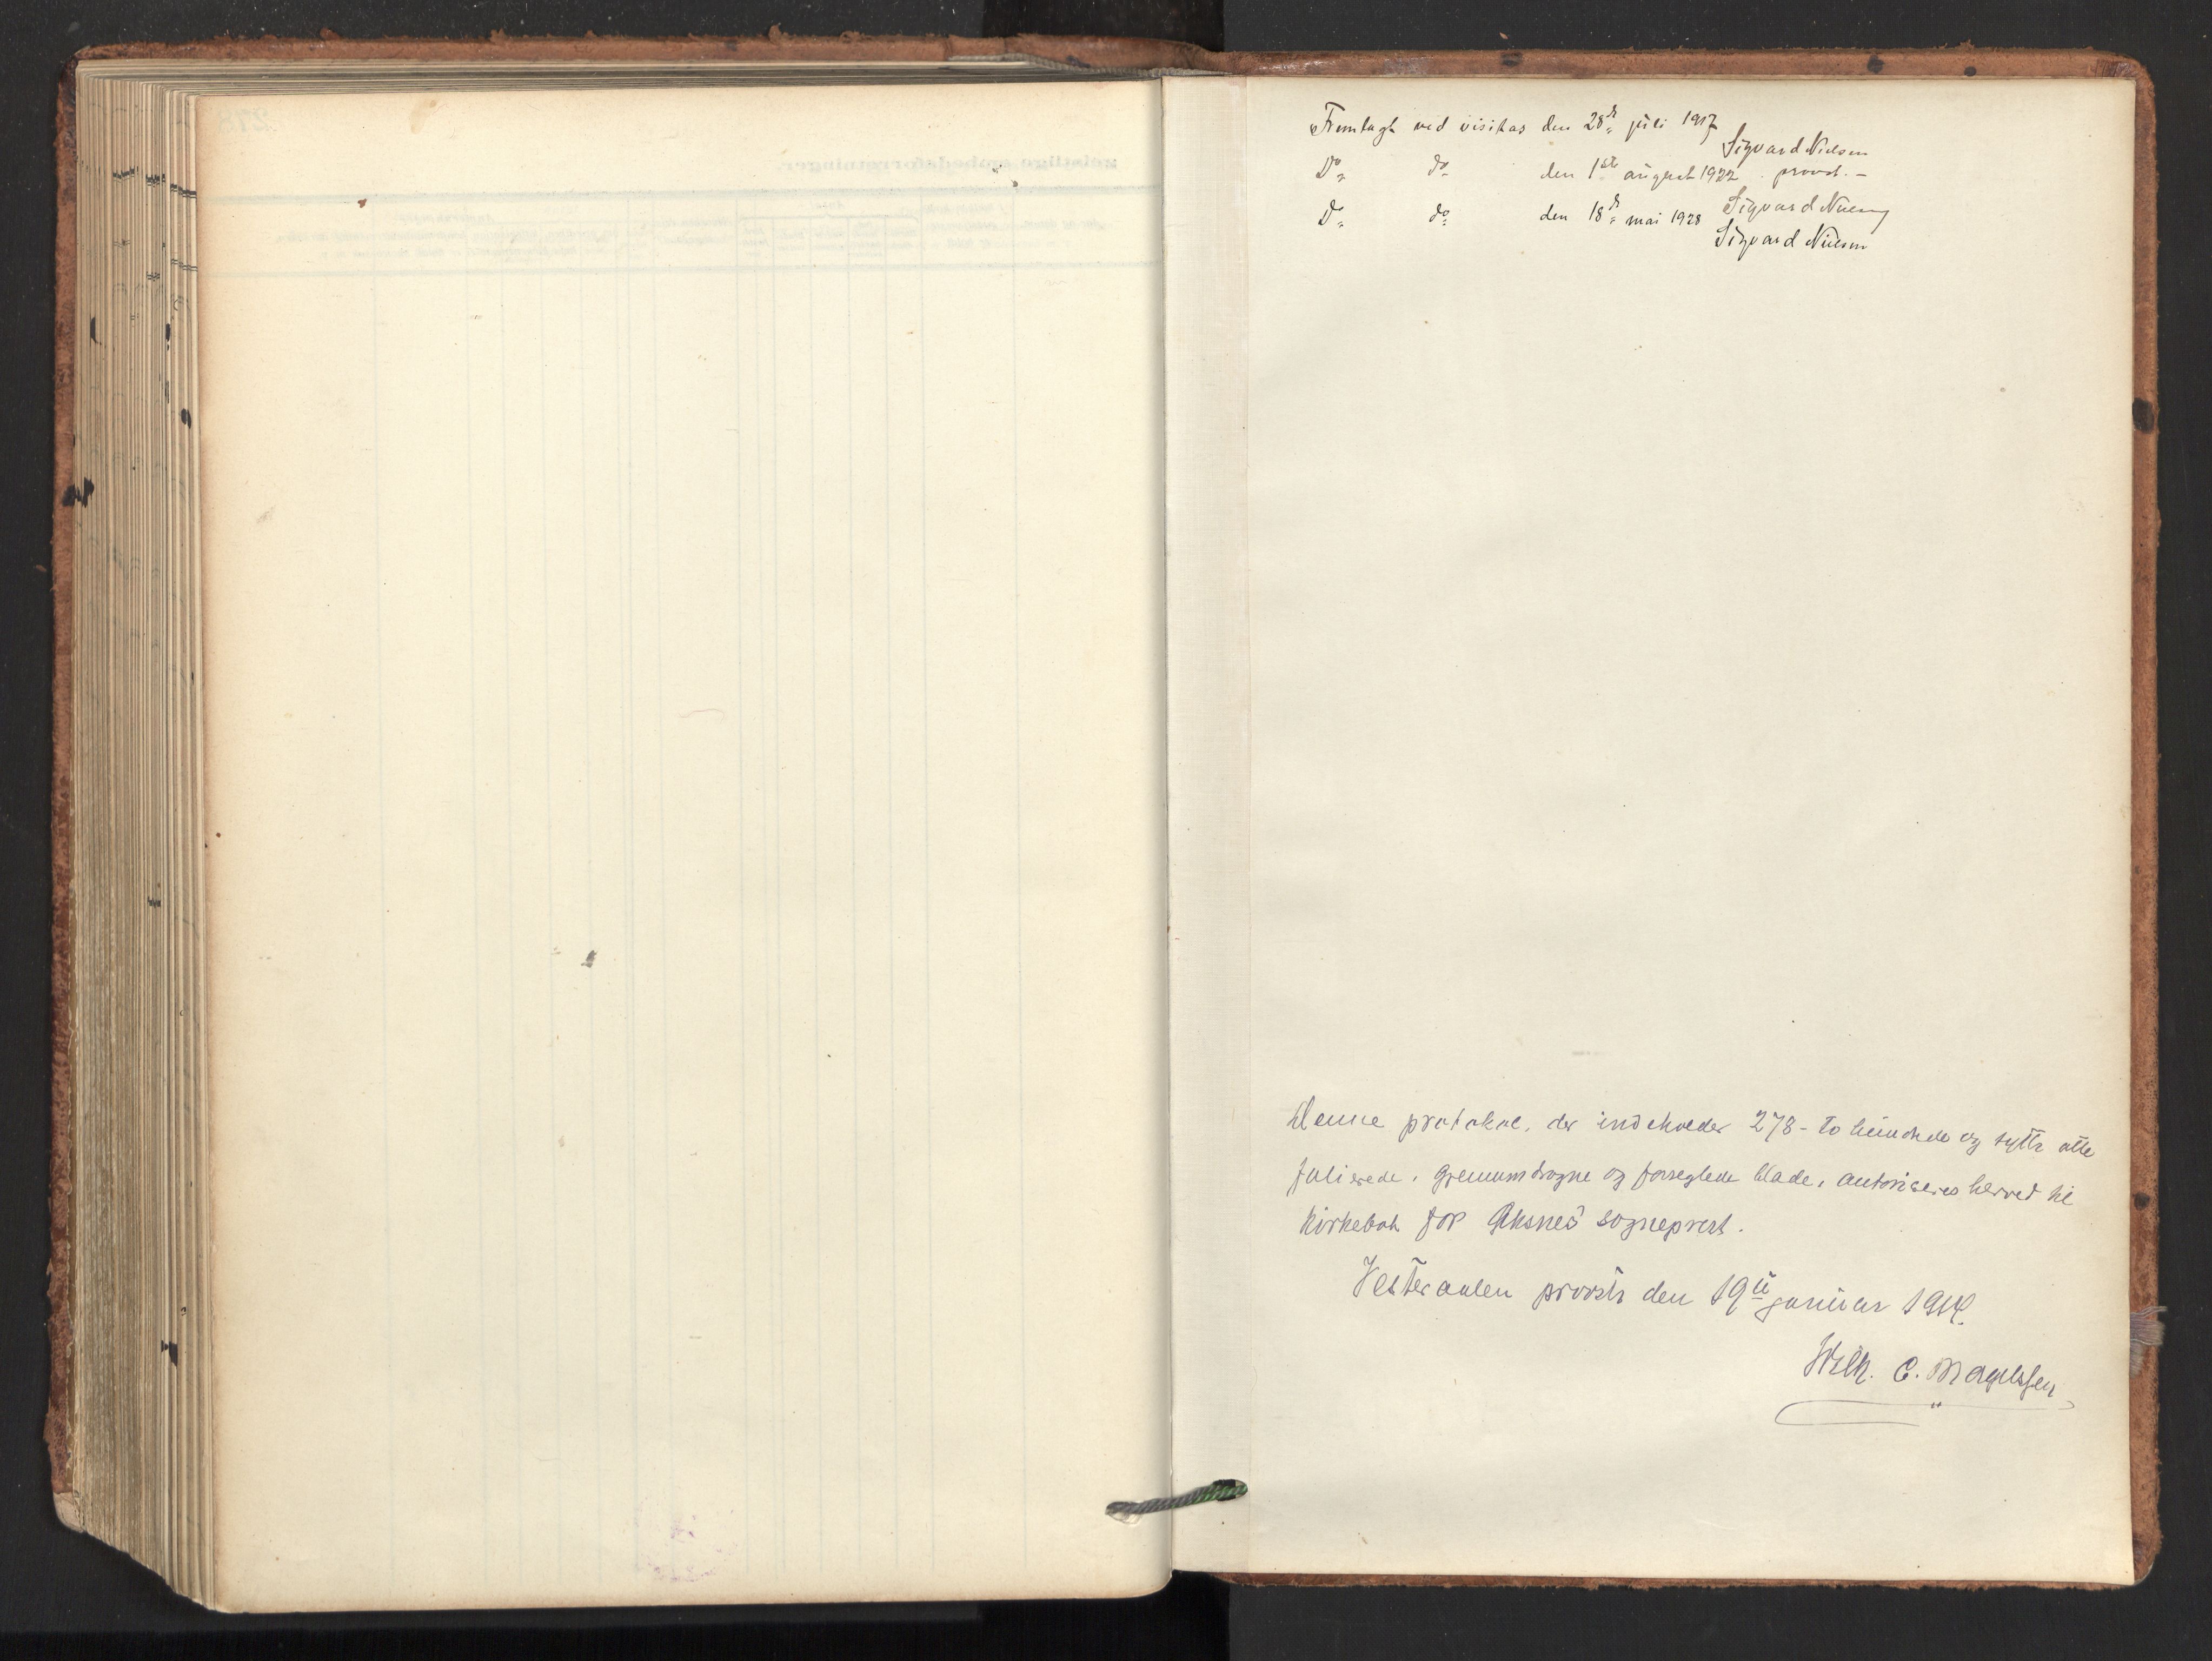 Fremlagt ved visitas den 28de juli 1917
Sigvard Nielsen
Do do den 1ste august 1922. provst. –
Sigvard Nielsen
Do do den 18de mai 1928
Sigvard Nielsen
Denne protokol, der indeholder 278 – to hundrede og sytti otte
folierede, gjennemdragne og forseglede blade, autoriseres herved til
kirkebok for Øksnes sogneprest.
Vesteraalen provsti den 19de januar 1914.
Wilh. C. Magelssen